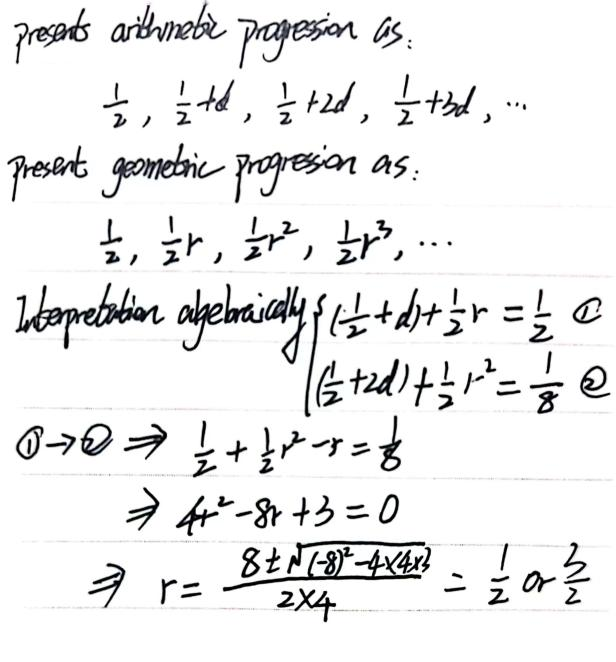 presents arithmetic progression as:
1/2, 1/2+d, 1/2+2d, 1/2+3d, ...
Present geometric progression as:
1/2, 1/2r, 1/2r², 1/2r³, ...
Interpretation algebraically { (1/2+d)+1/2r = 1/2 ①
(1/2+2d)+1/2r² = 1/8 ②
①→② ⇒ 1/2+1/2r²-r = 1/8
⇒ 4r²-8r+3=0
⇒ r = (8±√((-8)²-4×4×3))/(2×4) = 1/2 or 3/2